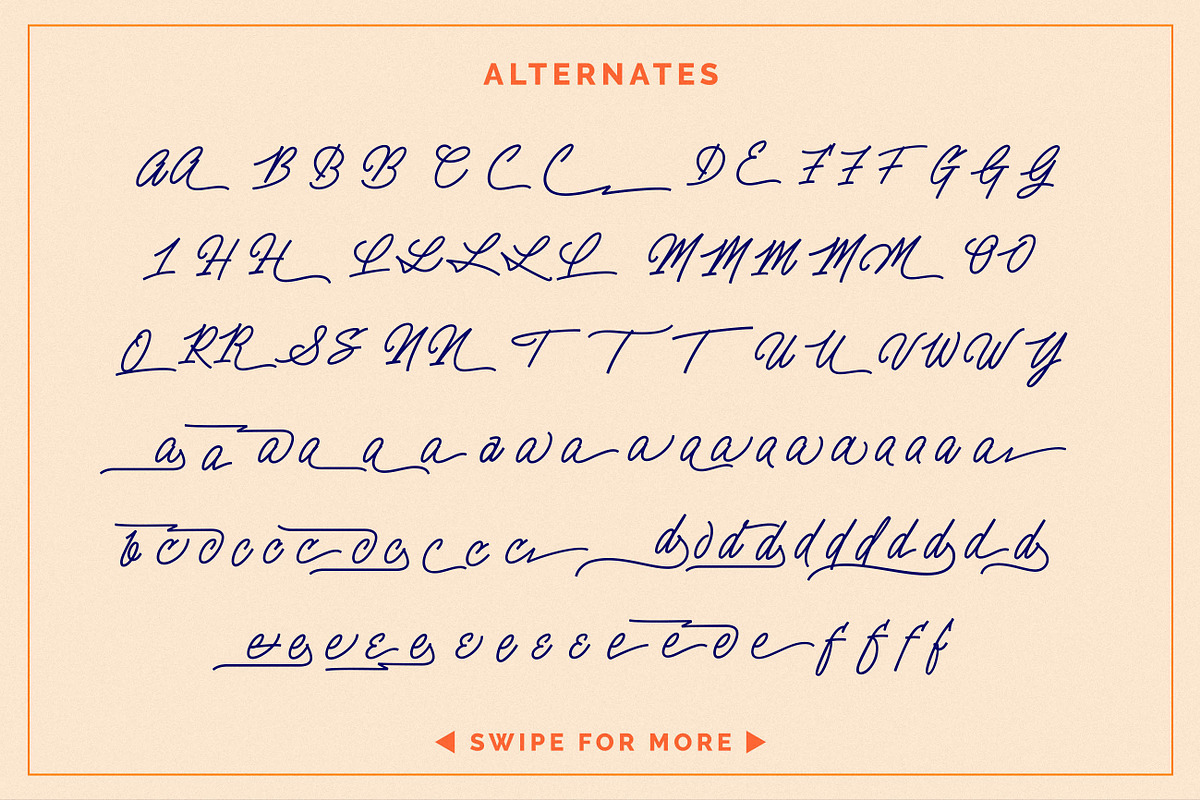 ALTERNATES
AA BBB CCC DE FFF GGG
IHH LLLLL MMMMM OO
ORR SS NN TTT UU VWWY
aaaaaaaaaaaaaaaaaa
bcccccccccc dddddddddddd
eeeeeeeeeeeeee ffff
◀ SWIPE FOR MORE ▶